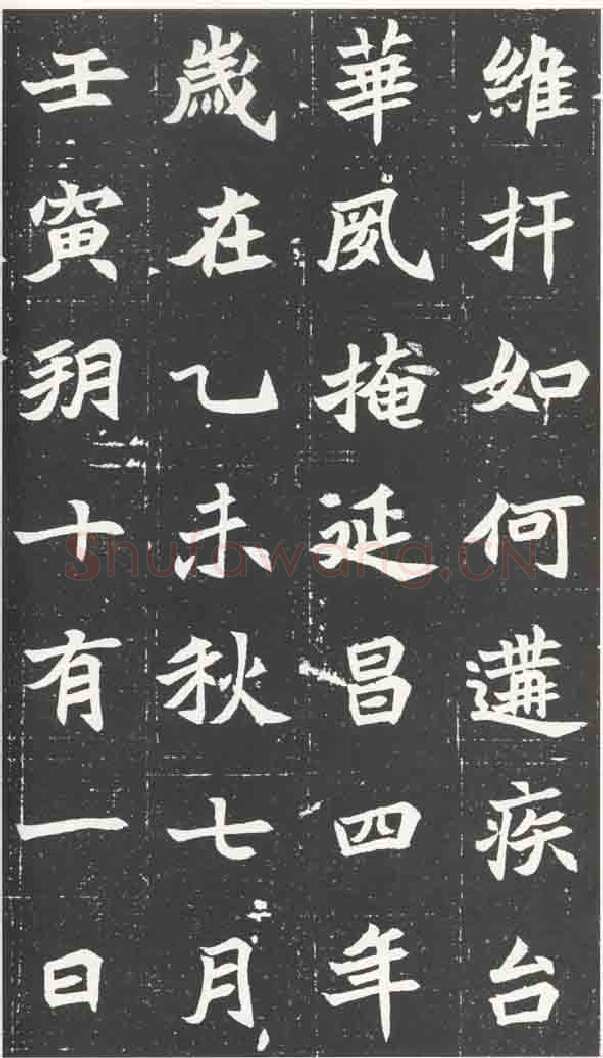 維扞如何遘疾台
華夙掩延昌四年
歲在乙未秋七月
壬寅朔十有一日
Shufawang.CN